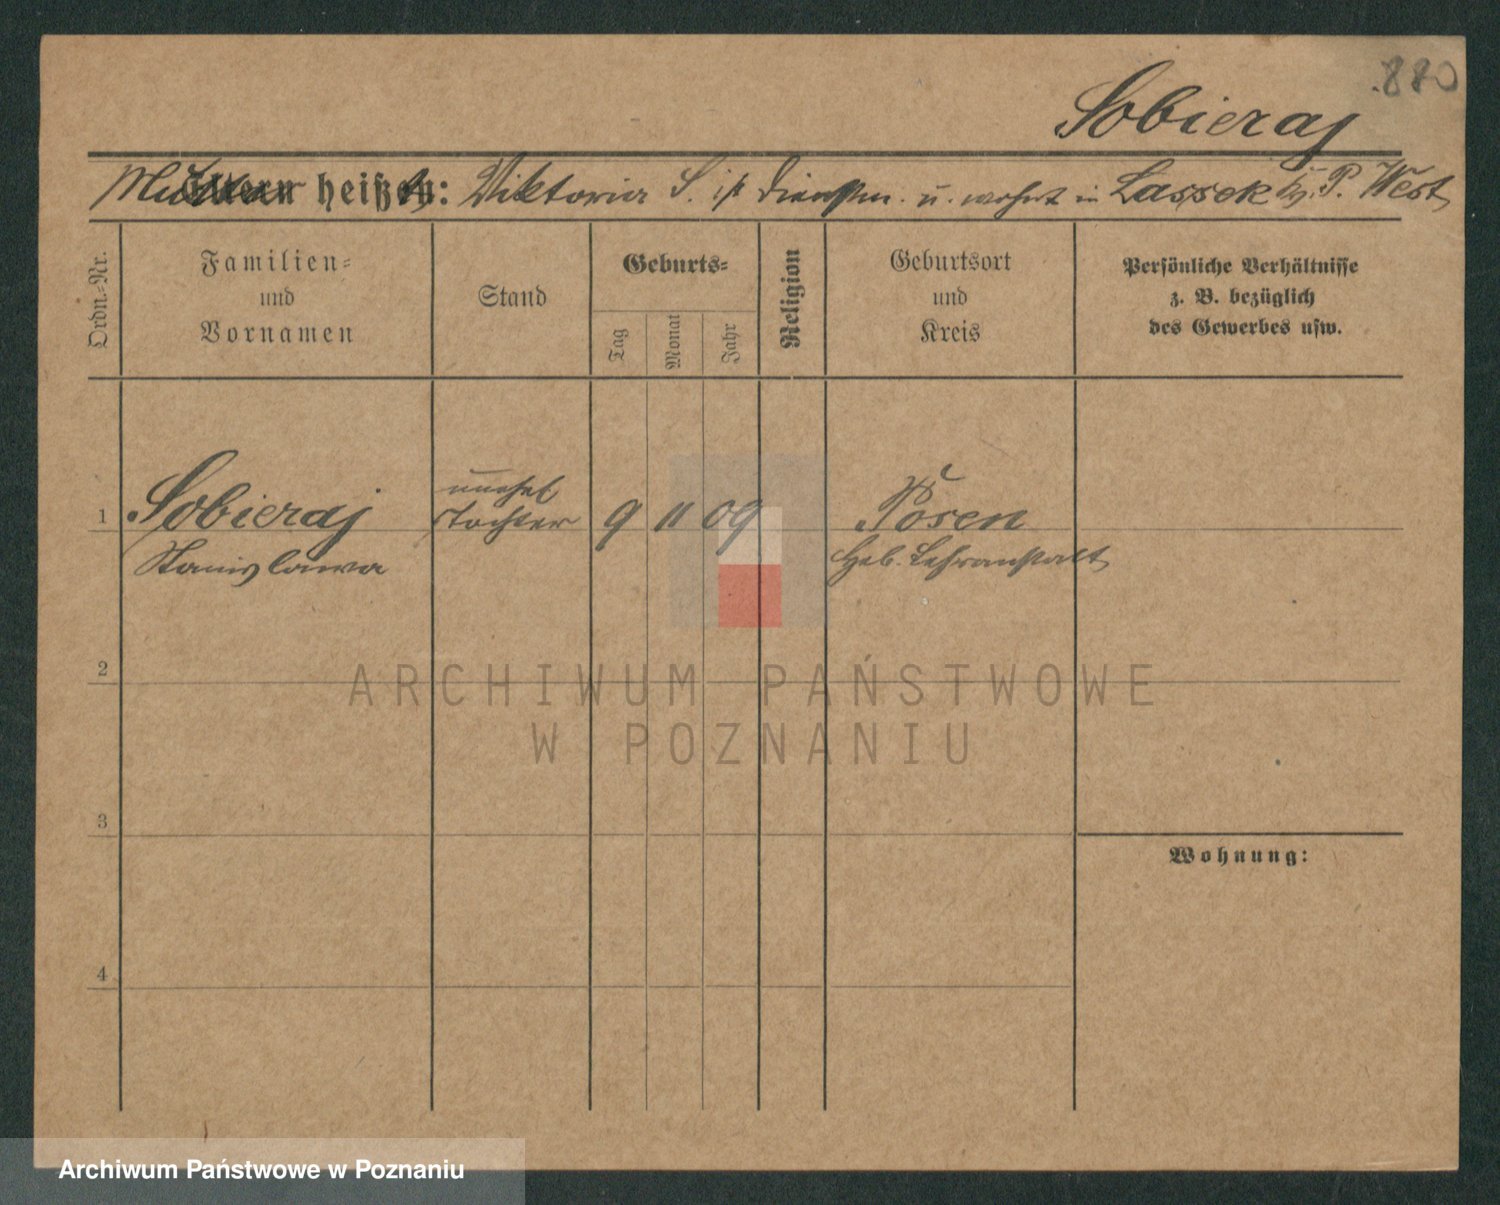 880
Sobieraj
Mutter heißt: Viktoria S. ist Dienstm. u. wohnt in Lassek Kr. P. West
Ordn.-Nr.
Familien-
und
Vornamen
Stand
Geburts-
Tag
Monat
Jahr
Religion
Geburtsort
und
Kreis
Persönliche Verhältnisse
z. B. bezüglich
des Gewerbes usw.
unehel
1 Sobieraj Tochter 9 11 09 Posen
Stanislawa Heb. Lehranstalt
2
ARCHIWUM PAŃSTWOWE
W POZNANIU
3
Wohnung:
4
Archiwum Państwowe w Poznaniu